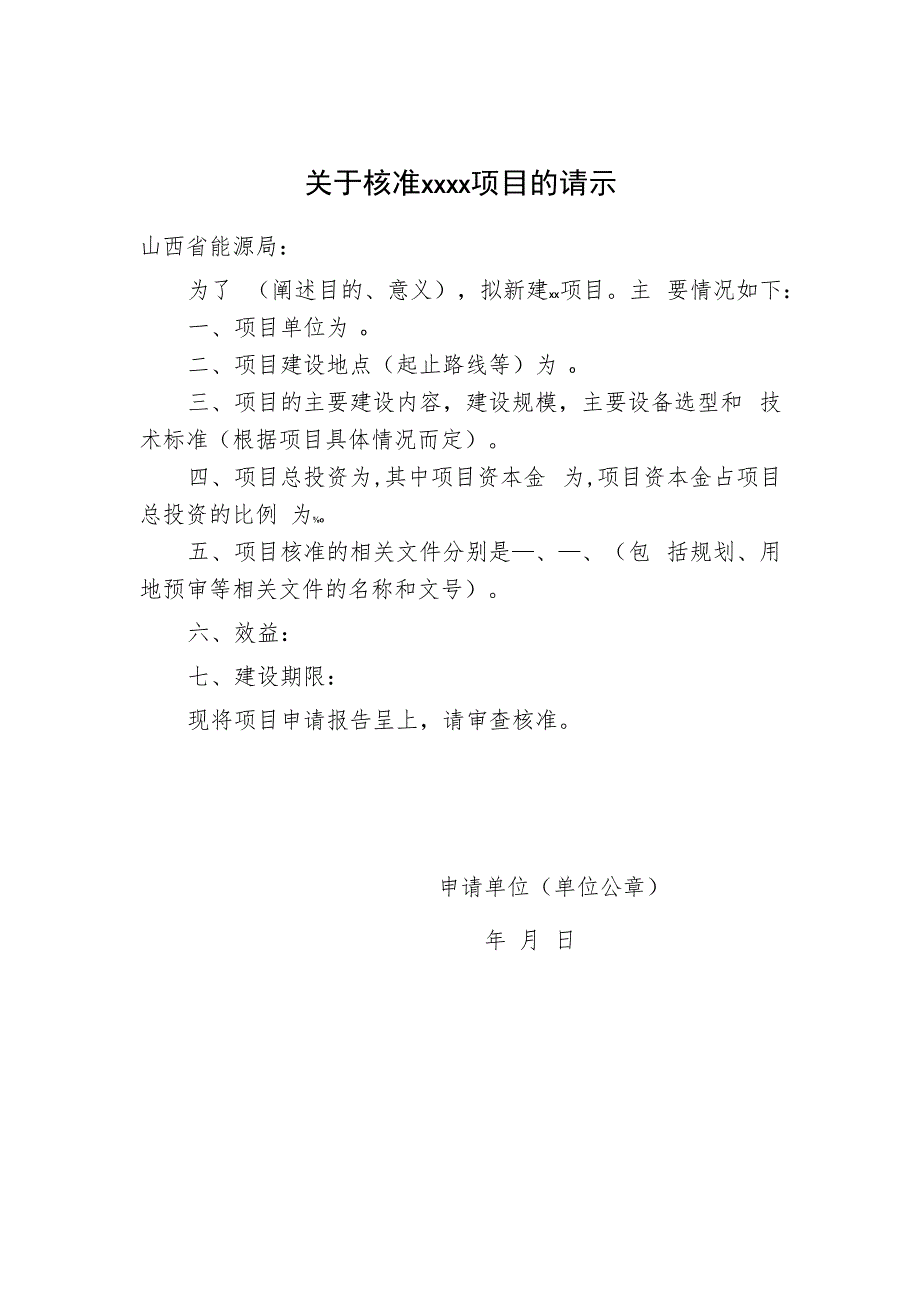 关于核准xxxx项目的请示
山西省能源局：
为了 （阐述目的、意义），拟新建xx项目。主 要情况如下：
一、项目单位为 。
二、项目建设地点（起止路线等）为 。
三、项目的主要建设内容，建设规模，主要设备选型和 技
术标准（根据项目具体情况而定）。
四、项目总投资为,其中项目资本金 为,项目资本金占项目
总投资的比例 为‰
五、项目核准的相关文件分别是—、—、（包 括规划、用
地预审等相关文件的名称和文号）。
六、效益：
七、建设期限：
现将项目申请报告呈上，请审查核准。
申请单位（单位公章）
年 月 日